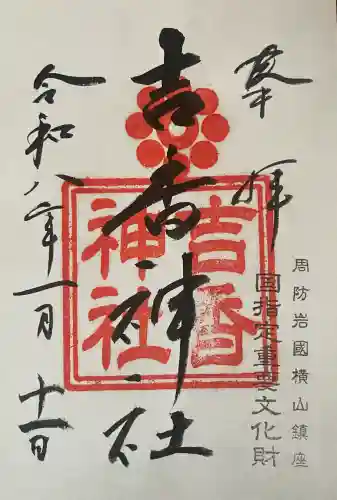 奉拝
周防岩國横山鎮座
国指定重要文化財
吉香神社
吉香
神社
令和八年一月十一日